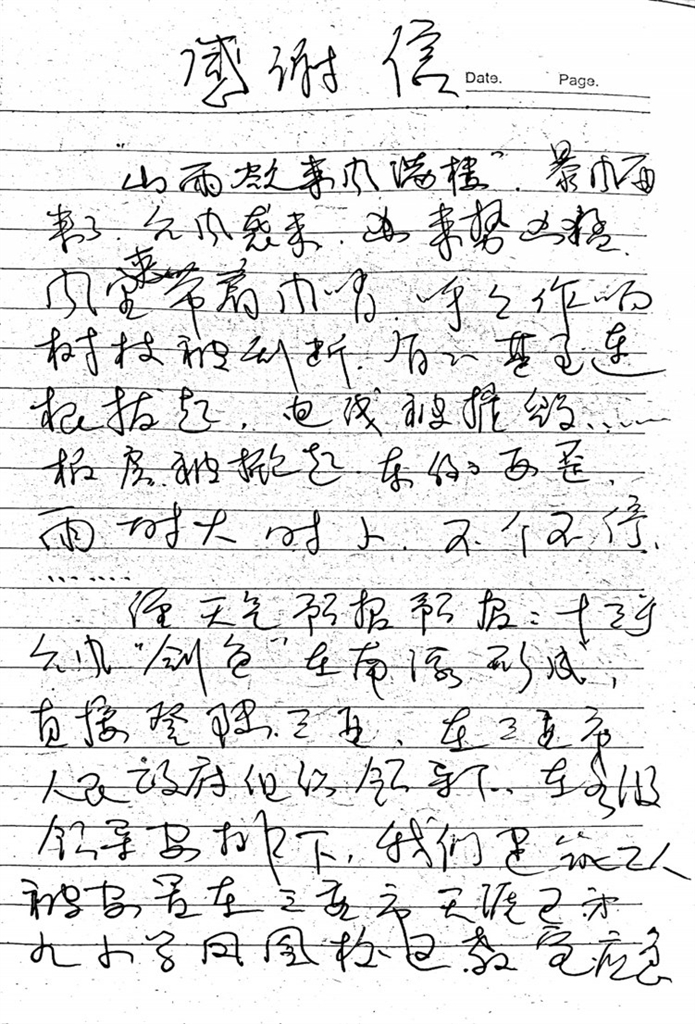 感谢信
Date. Page.
“山雨欲来风满楼”.暴风雨
来了.台风袭来.来势凶猛.
风里夹带着风哨.呼呼作响
树枝被刮断.有的甚至连
根拔起.电线被摧毁……
板房被掀起.东倒西歪.
雨时大时小.不个不停.
……
经天气预报预报:十三号
台风“剑鱼”在南海形成,
直接登陆三亚.在三亚市
人民政府组织领导下.在各级
领导安排下.我们建筑工人
被安置在三亚市天涯区第
九小学凤凰校区教室应急